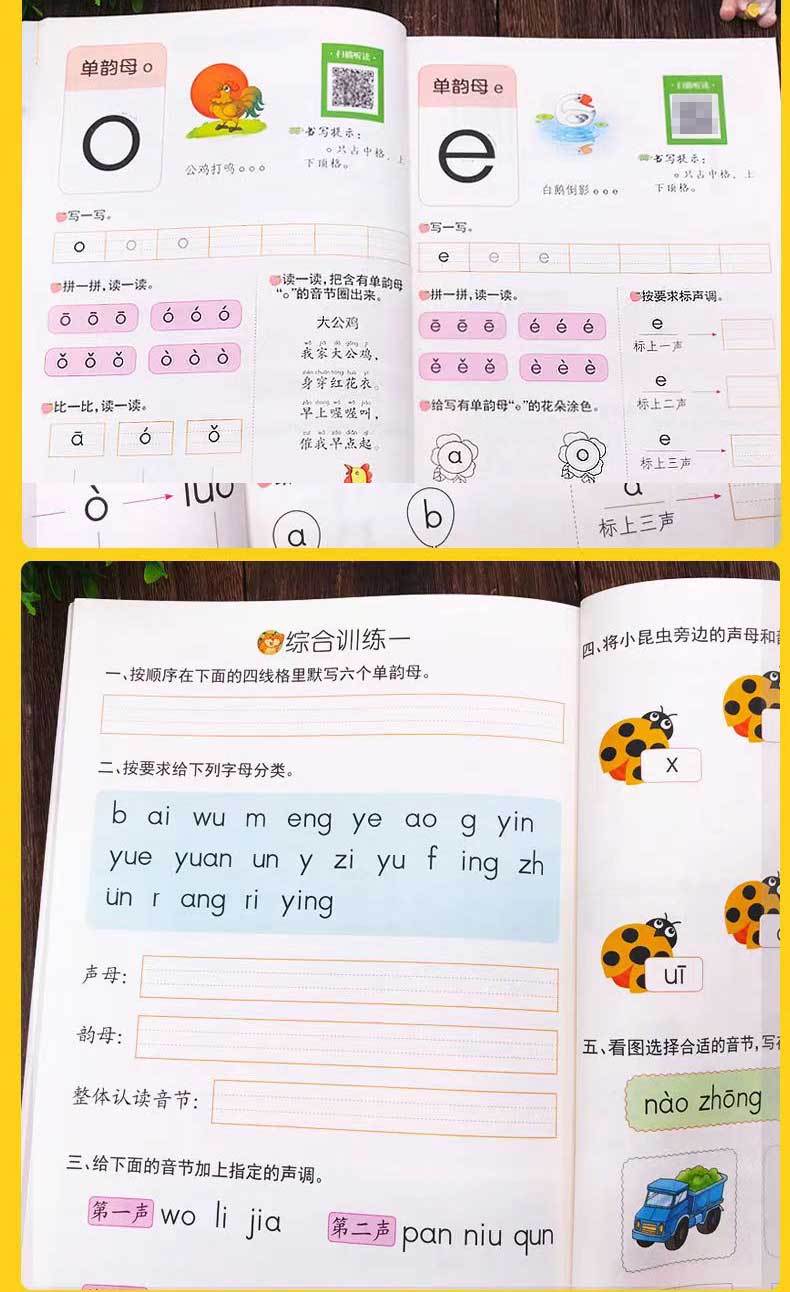 单韵母 o
o
扫描听读
公鸡打鸣 o o o
书写提示:
o 只占中格,上
下顶格。
写一写。
o o o
拼一拼,读一读。
ō ō ō ó ó ó
ǒ ǒ ǒ ò ò ò
比一比,读一读。
ā ó ǒ
读一读,把含有单韵母
“o”的音节圈出来。
大公鸡
我家大公鸡,
身穿红花衣。
早上喔喔叫,
催我早点起。
单韵母 e
e
扫描听读
白鹅倒影 e e e
书写提示:
e 只占中格,上
下顶格。
写一写。
e e e
拼一拼,读一读。
ē ē ē é é é
ě ě ě è è è
给写有单韵母“e”的花朵涂色。
a o
按要求标声调。
e
标上一声
e
标上二声
e
标上三声
ò luo
a b
a
标上三声
综合训练一
一、按顺序在下面的四线格里默写六个单韵母。
二、按要求给下列字母分类。
b ai wu m eng ye ao g yin
yue yuan un y zi yu f ing zh
ün r ang ri ying
声母:
韵母:
整体认读音节:
三、给下面的音节加上指定的声调。
第一声 wo li jia 第二声 pan niu qun
四、将小昆虫旁边的声母和
x
uī
五、看图选择合适的音节,写
nào zhōng